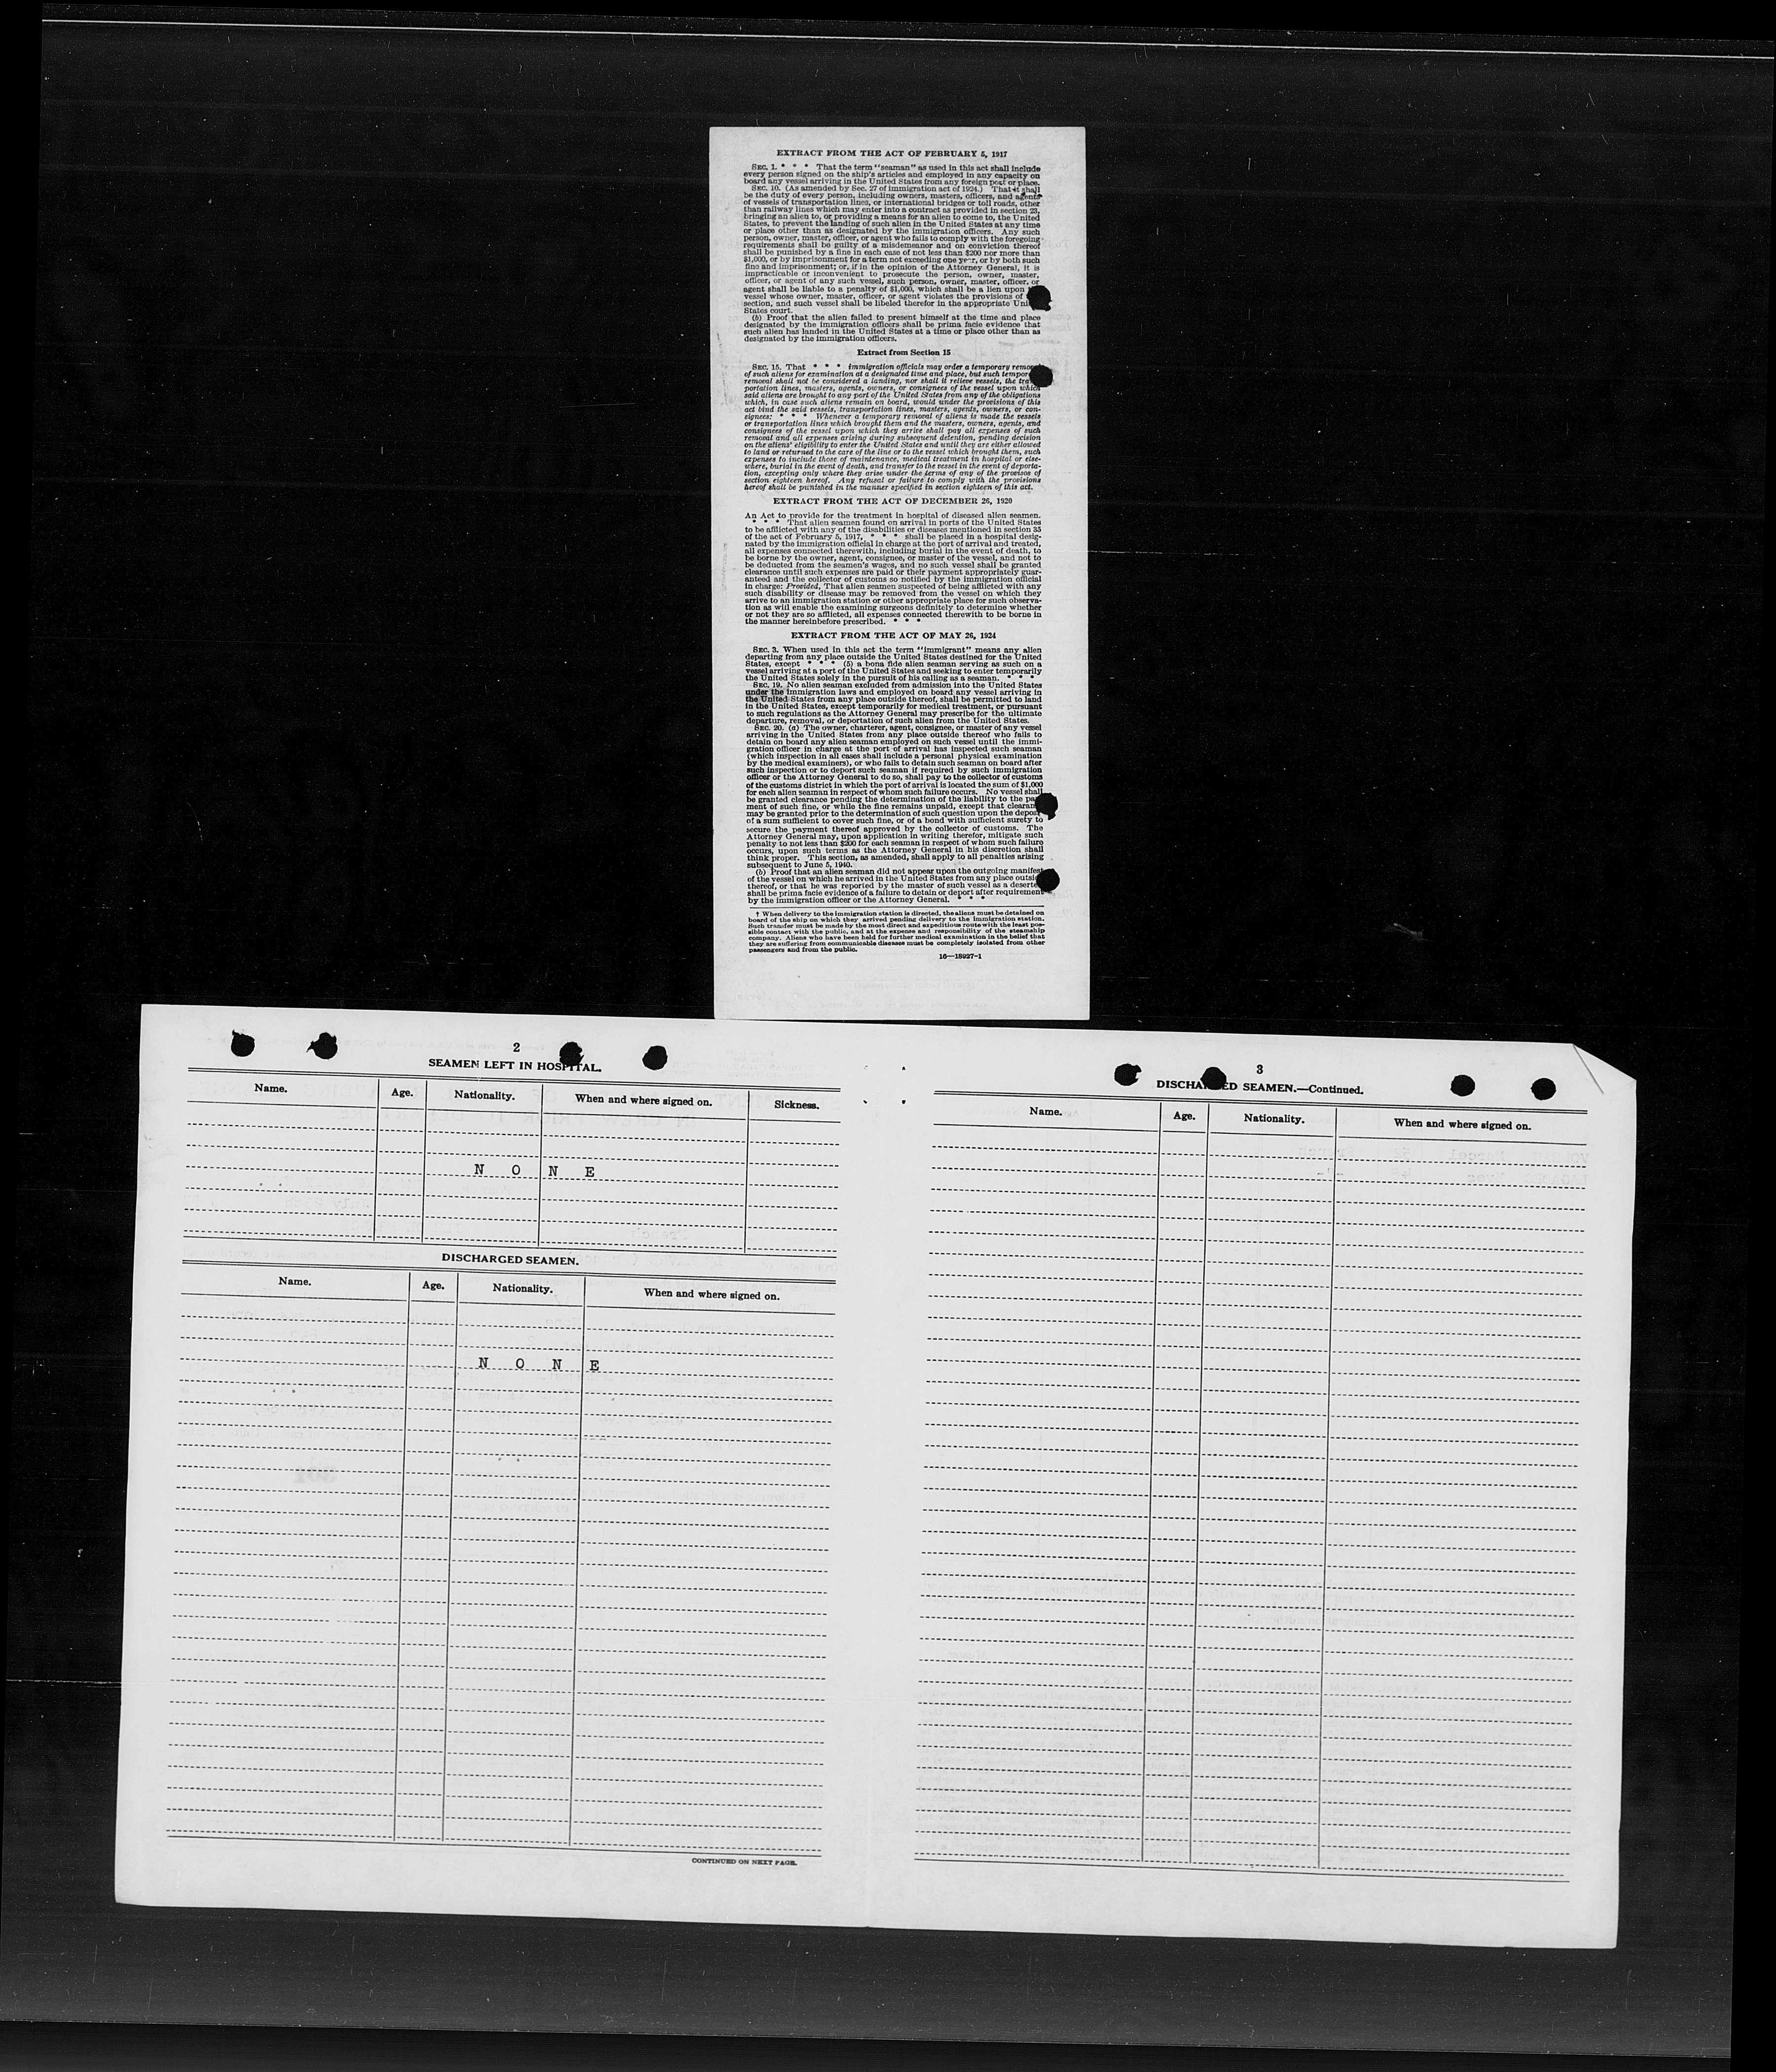 EXTRACT FROM THE ACT OF FEBRUARY 5, 1917
SEC. 1. * * * That the term "seaman" as used in this act shall include
every person signed on the ship's articles and employed in any capacity on
board any vessel arriving in the United States from any foreign port or place.
SEC. 10. (As amended by Sec. 27 of immigration act of 1924.) That it shall
be the duty of every person, including owners, masters, officers, and agents
of vessels of transportation lines, or international bridges or toll roads, other
than railway lines which may enter into a contract as provided in section 23,
bringing an alien to, or providing a means for an alien to come to, the United
States, to prevent the landing of such alien in the United States at any time
or place other than as designated by the immigration officers. Any such
person, owner, master, officer, or agent who fails to comply with the foregoing
requirements shall be guilty of a misdemeanor and on conviction thereof
shall be punished by a fine in each case of not less than $200 nor more than
$1,000, or by imprisonment for a term not exceeding one year, or by both such
fine and imprisonment; or, if in the opinion of the Attorney General, it is
impracticable or inconvenient to prosecute the person, owner, master,
officer, or agent of any such vessel, such person, owner, master, officer, or
agent shall be liable to a penalty of $1,000, which shall be a lien upon
vessel whose owner, master, officer, or agent violates the provisions of
section, and such vessel shall be libeled therefor in the appropriate Uni
States court.
(b) Proof that the alien failed to present himself at the time and place
designated by the immigration officers shall be prima facie evidence that
such alien has landed in the United States at a time or place other than as
designated by the immigration officers.
Extract from Section 15
SEC. 15. That * * * immigration officials may order a temporary removal
of such aliens for examination at a designated time and place, but such tempor
removal shall not be considered a landing, nor shall it relieve vessels, the tra
portation lines, masters, agents, owners, or consignees of the vessel upon which
said aliens are brought to any port of the United States from any of the obligations
which, in case such aliens remain on board, would under the provisions of this
act bind the said vessels, transportation lines, masters, agents, owners, or con-
signees: * * * Whenever a temporary removal of aliens is made the vessels
or transportation lines which brought them and the masters, owners, agents, and
consignees of the vessel upon which they arrive shall pay all expenses of such
removal and all expenses arising during subsequent detention, pending decision
on the aliens' eligibility to enter the United States and until they are either allowed
to land or returned to the care of the line or to the vessel which brought them, such
expenses to include those of maintenance, medical treatment in hospital or else-
where, burial in the event of death, and transfer to the vessel in the event of deporta-
tion, excepting only where they arise under the terms of any of the provisos of
section eighteen hereof. Any refusal or failure to comply with the provisions
hereof shall be punished in the manner specified in section eighteen of this act.
EXTRACT FROM THE ACT OF DECEMBER 26, 1920
An Act to provide for the treatment in hospital of diseased alien seamen.
* * * That alien seamen found on arrival in ports of the United States
to be afflicted with any of the disabilities or diseases mentioned in section 35
of the act of February 5, 1917, * * * shall be placed in a hospital desig-
nated by the immigration official in charge at the port of arrival and treated,
all expenses connected therewith, including burial in the event of death, to
be borne by the owner, agent, consignee, or master of the vessel, and not to
be deducted from the seamen's wages, and no such vessel shall be granted
clearance until such expenses are paid or their payment appropriately guar-
anteed and the collector of customs so notified by the immigration official
in charge: Provided, That alien seamen suspected of being afflicted with any
such disability or disease may be removed from the vessel on which they
arrive to an immigration station or other appropriate place for such observa-
tion as will enable the examining surgeons definitely to determine whether
or not they are so afflicted, all expenses connected therewith to be borne in
the manner hereinbefore prescribed. * * *
EXTRACT FROM THE ACT OF MAY 26, 1924
SEC. 3. When used in this act the term "immigrant" means any alien
departing from any place outside the United States destined for the United
States, except * * * (5) a bona fide alien seaman serving as such on a
vessel arriving at a port of the United States and seeking to enter temporarily
the United States solely in the pursuit of his calling as a seaman. * * *
SEC. 19. No alien seaman excluded from admission into the United States
under the immigration laws and employed on board any vessel arriving in
the United States from any place outside thereof, shall be permitted to land
in the United States, except temporarily for medical treatment, or pursuant
to such regulations as the Attorney General may prescribe for the ultimate
departure, removal, or deportation of such alien from the United States.
SEC. 20. (a) The owner, charterer, agent, consignee, or master of any vessel
arriving in the United States from any place outside thereof who fails to
detain on board any alien seaman employed on such vessel until the immi-
gration officer in charge at the port of arrival has inspected such seaman
(which inspection in all cases shall include a personal physical examination
by the medical examiners), or who fails to detain such seaman on board after
such inspection or to deport such seaman if required by such immigration
officer or the Attorney General to do so, shall pay to the collector of customs
of the customs district in which the port of arrival is located the sum of $1,000
for each alien seaman in respect of whom such failure occurs. No vessel shall
be granted clearance pending the determination of the liability to the pa
ment of such fine, or while the fine remains unpaid, except that clearan
may be granted prior to the determination of such question upon the deposi
of a sum sufficient to cover such fine, or of a bond with sufficient surety to
secure the payment thereof approved by the collector of customs. The
Attorney General may, upon application in writing therefor, mitigate such
penalty to not less than $200 for each seaman in respect of whom such failure
occurs, upon such terms as the Attorney General in his discretion shall
think proper. This section, as amended, shall apply to all penalties arising
subsequent to June 5, 1940.
(b) Proof that an alien seaman did not appear upon the outgoing manifest
of the vessel on which he arrived in the United States from any place outside
thereof, or that he was reported by the master of such vessel as a deserte
shall be prima facie evidence of a failure to detain or deport after requirement
by the immigration officer or the Attorney General. * * *
† When delivery to the immigration station is directed, the aliens must be detained on
board of the ship on which they arrived pending delivery to the immigration station.
Such transfer must be made by the most direct and expeditious route with the least pos-
sible contact with the public, and at the expense and responsibility of the steamship
company. Aliens who have been held for further medical examination in the belief that
they are suffering from communicable diseases must be completely isolated from other
passengers and from the public.
16—18927-1
2
SEAMEN LEFT IN HOSPITAL.
Name. Age. Nationality. When and where signed on. Sickness.
N O N E
DISCHARGED SEAMEN.
Name. Age. Nationality. When and where signed on.
N O N E
CONTINUED ON NEXT PAGE.
3
DISCHARGED SEAMEN.—Continued.
Name. Age. Nationality. When and where signed on.